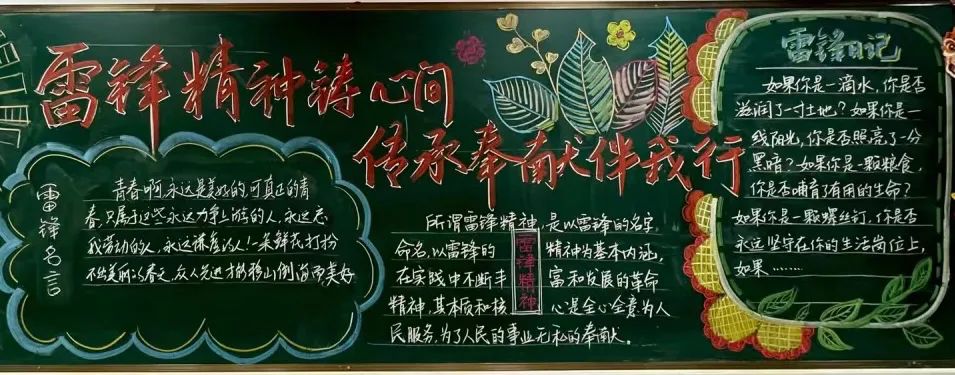 雷锋精神铸心间
传承奉献伴我行
雷锋名言
青春啊,永远是美好的,可真正的青
春,只属于这些永远力争上游的人,永远忘
我劳动的人,永远谦虚的人!一朵鲜花打扮
不出美丽的春天,众人先进才能移山倒海
所谓雷锋精神,是以雷锋的名字
命名,以雷锋的精神为基本内涵,
在实践中不断丰富和发展的革命
精神,其本质和核心是全心全意为人
民服务,为了人民的事业无私的奉献。
雷锋精神
雷锋日记
如果你是一滴水,你是否
滋润了一寸土地?如果你是一
线阳光,你是否照亮了一分
黑暗?如果你是一颗粮食,
你是否哺育了有用的生命?
如果你是一颗螺丝钉,你是否
永远坚守在你的生活岗位上,
如果……